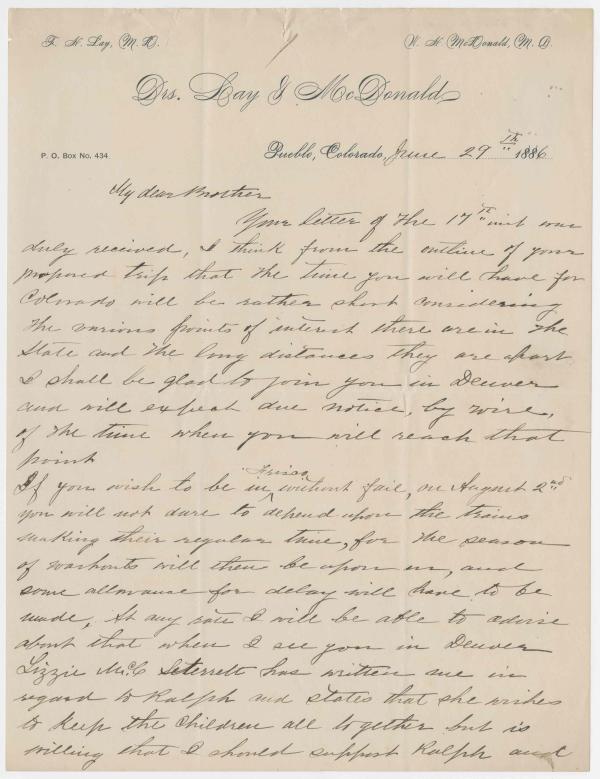 T. H. Lay, M. D.
W. H. McDonald, M. D.
Drs. Lay & McDonald,
P. O. Box No. 434
Pueblo, Colorado, June 29th 1886
My dear Brother
Your letter of the 17th inst was
duly received, I think from the outline of your
proposed trip that the time you will have for
Colorado will be rather short considering
the various points of interest there are in the
State and the long distances they are apart
I shall be glad to join you in Denver
and will expect due notice, by wire,
of the time when you will reach that
point
If you wish to be in Frisco without fail, on August 2nd
you will not dare to depend upon the trains
making their regular time, for the season
of washouts will then be upon us, and
some allowance for delay will have to be
made, At any rate I will be able to advise
about that when I see you in Denver
Lizzie McC Sterrett has written me in
regard to Ralph and states that she wishes
to keep the children all together but is
willing that I should support Ralph and